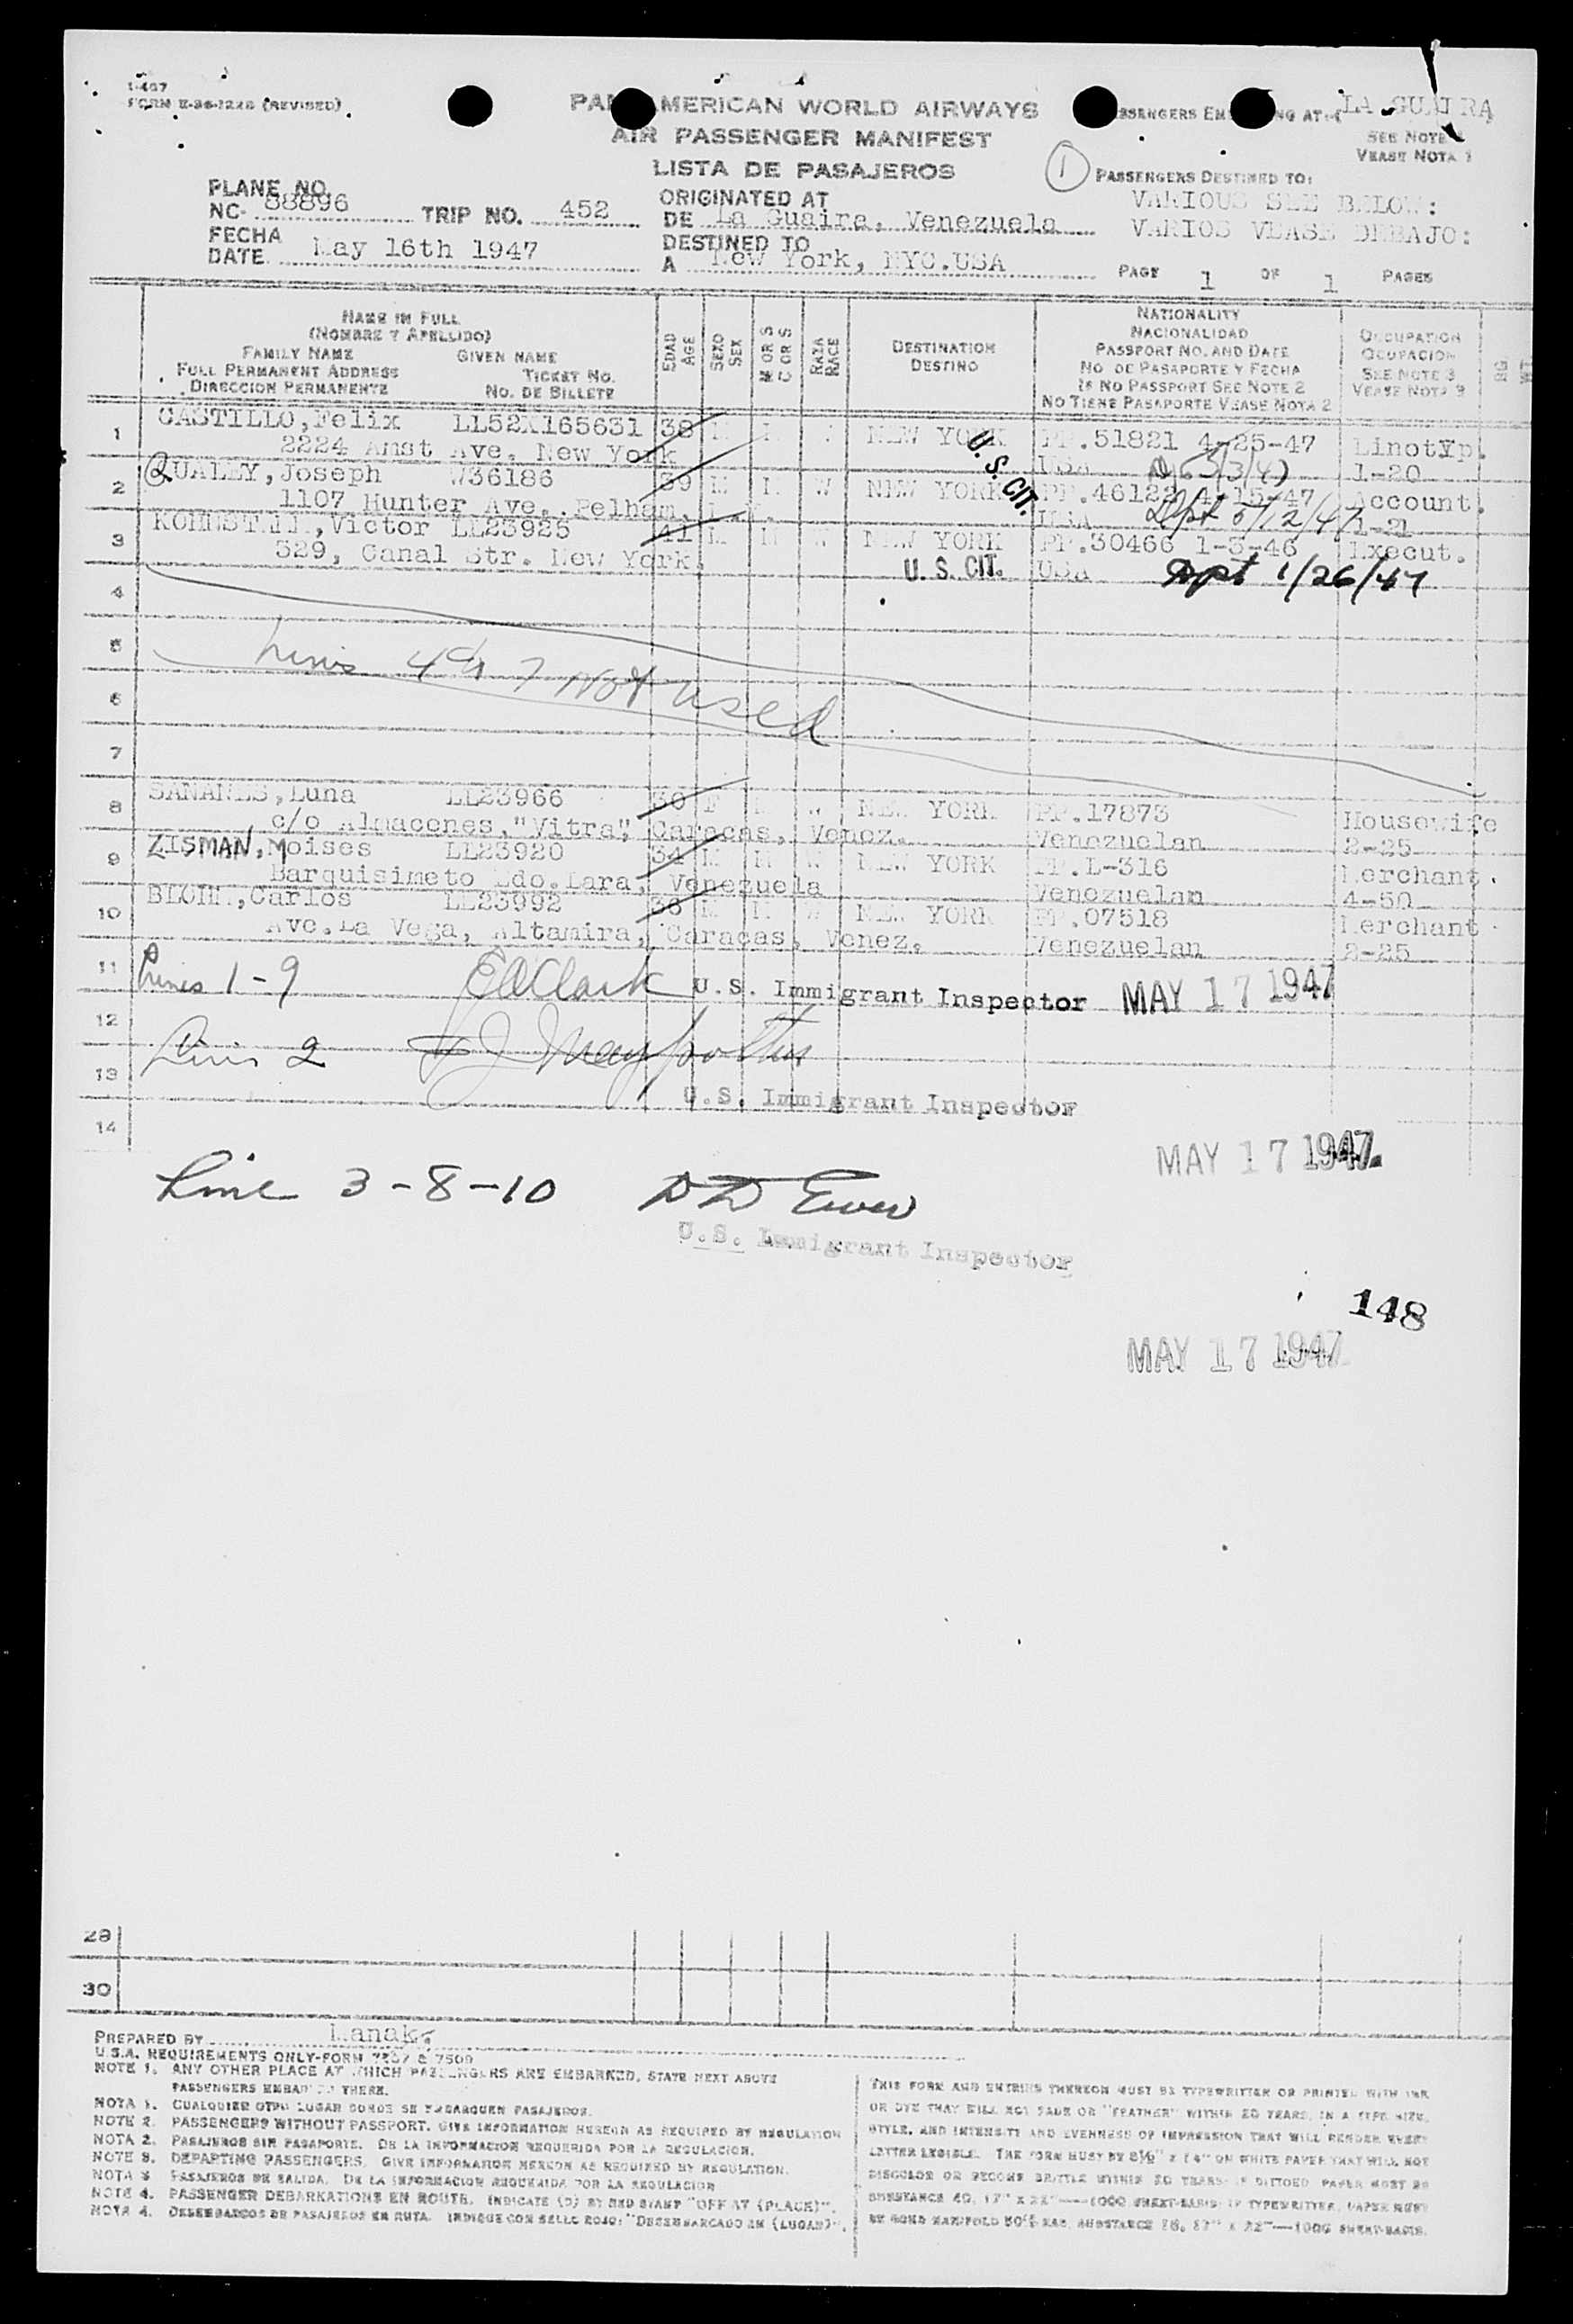 I-467
FORM E-36-122B (REVISED)
PAN AMERICAN WORLD AIRWAYS
AIR PASSENGER MANIFEST
LISTA DE PASAJEROS
PASSENGERS EMBARKING AT: LA GUAIRA
SEE NOTE 1
VEASE NOTA 1
1
PASSENGERS DESTINED TO:
VARIOUS SEE BELOW:
VARIOS VEASE DEBAJO:
PLANE NO.
NC- 88896 TRIP NO. 452
FECHA
DATE May 16th 1947
ORIGINATED AT
DE La Guaira, Venezuela
DESTINED TO
A New York, NYC.USA
PAGE 1 OF 1 PAGES
NAME IN FULL
(NOMBRE Y APELLIDO)
FAMILY NAME GIVEN NAME
FULL PERMANENT ADDRESS TICKET NO.
DIRECCION PERMANENTE NO. DE BILLETE
EDAD
AGE
SEXO
SEX
M OR S
C OR S
RAZA
RACE
DESTINATION
DESTINO
NATIONALITY
NACIONALIDAD
PASSPORT NO. AND DATE
NO. DE PASAPORTE Y FECHA
IF NO PASSPORT SEE NOTE 2
NO TIENE PASAPORTE VEASE NOTA 2
OCCUPATION
OCUPACION
SEE NOTE 3
VEASE NOTA 3
1 CASTILLO, Felix 38 M NEW YORK PP.51821 4-25-47 Linotyp.
2224 Amst Ave. New York USA 1-20
U.S. CIT.
2 QUALEY, Joseph W36186 39 M M W NEW YORK PP.46122 4-15-47 Account.
1107 Hunter Ave. Pelham, N.Y. USA Dpt 5/12/47 1-21
3 Victor LL23925 41 M M W NEW YORK PP.30466 1-3-46 Execut.
529, Canal Str. New York. U. S. CIT. USA Dpt 1/26/47
4
5
6
7
Lines 4 to 7 Not used
8 Luna LL23966 30 F M W NEW YORK PP.17873 Housewife
c/o Almacenes, "Vitra", Caracas, Venez. Venezuelan 2-25
9 ZISMAN, Moises LL23920 34 M M W NEW YORK PP.L-316 Merchant.
Barquisimeto Edo.Lara, Venezuela Venezuelan 4-50
10 Carlos LL23992 36 M M W NEW YORK PP.07518 Merchant.
Ave.La Vega, Altamira, Caracas, Venez. Venezuelan 2-25
11 Lines 1-9 Clark U.S. Immigrant Inspector MAY 17 1947
12
Line 2
13
U.S. Immigrant Inspector
14
MAY 17 1947
Line 3-8-10
U.S. Immigrant Inspector
148
MAY 17 1947
29
30
PREPARED BY
U.S.A. REQUIREMENTS ONLY-FORM 7507 & 7509
NOTE 1. ANY OTHER PLACE AT WHICH PASSENGERS ARE EMBARKED, STATE NEXT ABOVE
PASSENGERS EMBARKED THERE.
NOTA 1. CUALQUIER OTRO LUGAR DONDE SE EMBARQUEN PASAJEROS.
NOTE 2. PASSENGERS WITHOUT PASSPORT. GIVE INFORMATION HEREON AS REQUIRED BY REGULATION
NOTA 2. PASAJEROS SIN PASAPORTE. DE LA INFORMACION REQUERIDA POR LA REGULACION.
NOTE 3. DEPARTING PASSENGERS. GIVE INFORMATION HEREON AS REQUIRED BY REGULATION.
NOTA 3 PASAJEROS DE SALIDA. DE LA INFORMACION REQUERIDA POR LA REGULACION
NOTE 4. PASSENGER DEBARKATIONS EN ROUTE. INDICATE (D) BY RED STAMP "OFF AT (PLACE)".
NOTA 4. DESEMBARCOS DE PASAJEROS EN RUTA. INDIQUE CON SELLO ROJO: "DESEMBARCADO EN (LUGAR)".
THIS FORM AND ENTRIES THEREON MUST BE TYPEWRITTEN OR PRINTED WITH INK
OR DYE THAT WILL NOT FADE OR "FEATHER" WITHIN 20 YEARS, IN A TYPE SIZE,
STYLE, AND INTENSITY AND EVENNESS OF IMPRESSION THAT WILL RENDER EVERY
LETTER LEGIBLE. THE FORM MUST BE 8½" X 14" ON WHITE PAPER THAT WILL NOT
DISCOLOR OR BECOME BRITTLE WITHIN 20 YEARS. IF DITTOED PAPER MUST BE
SUBSTANCE 40, 17" X 22"—1000 SHEET-BASIS; IF TYPEWRITTEN, PAPER MUST
BE BOND MANIFOLD 50% RAG, SUBSTANCE 26, 17" X 22"—1000 SHEET-BASIS.